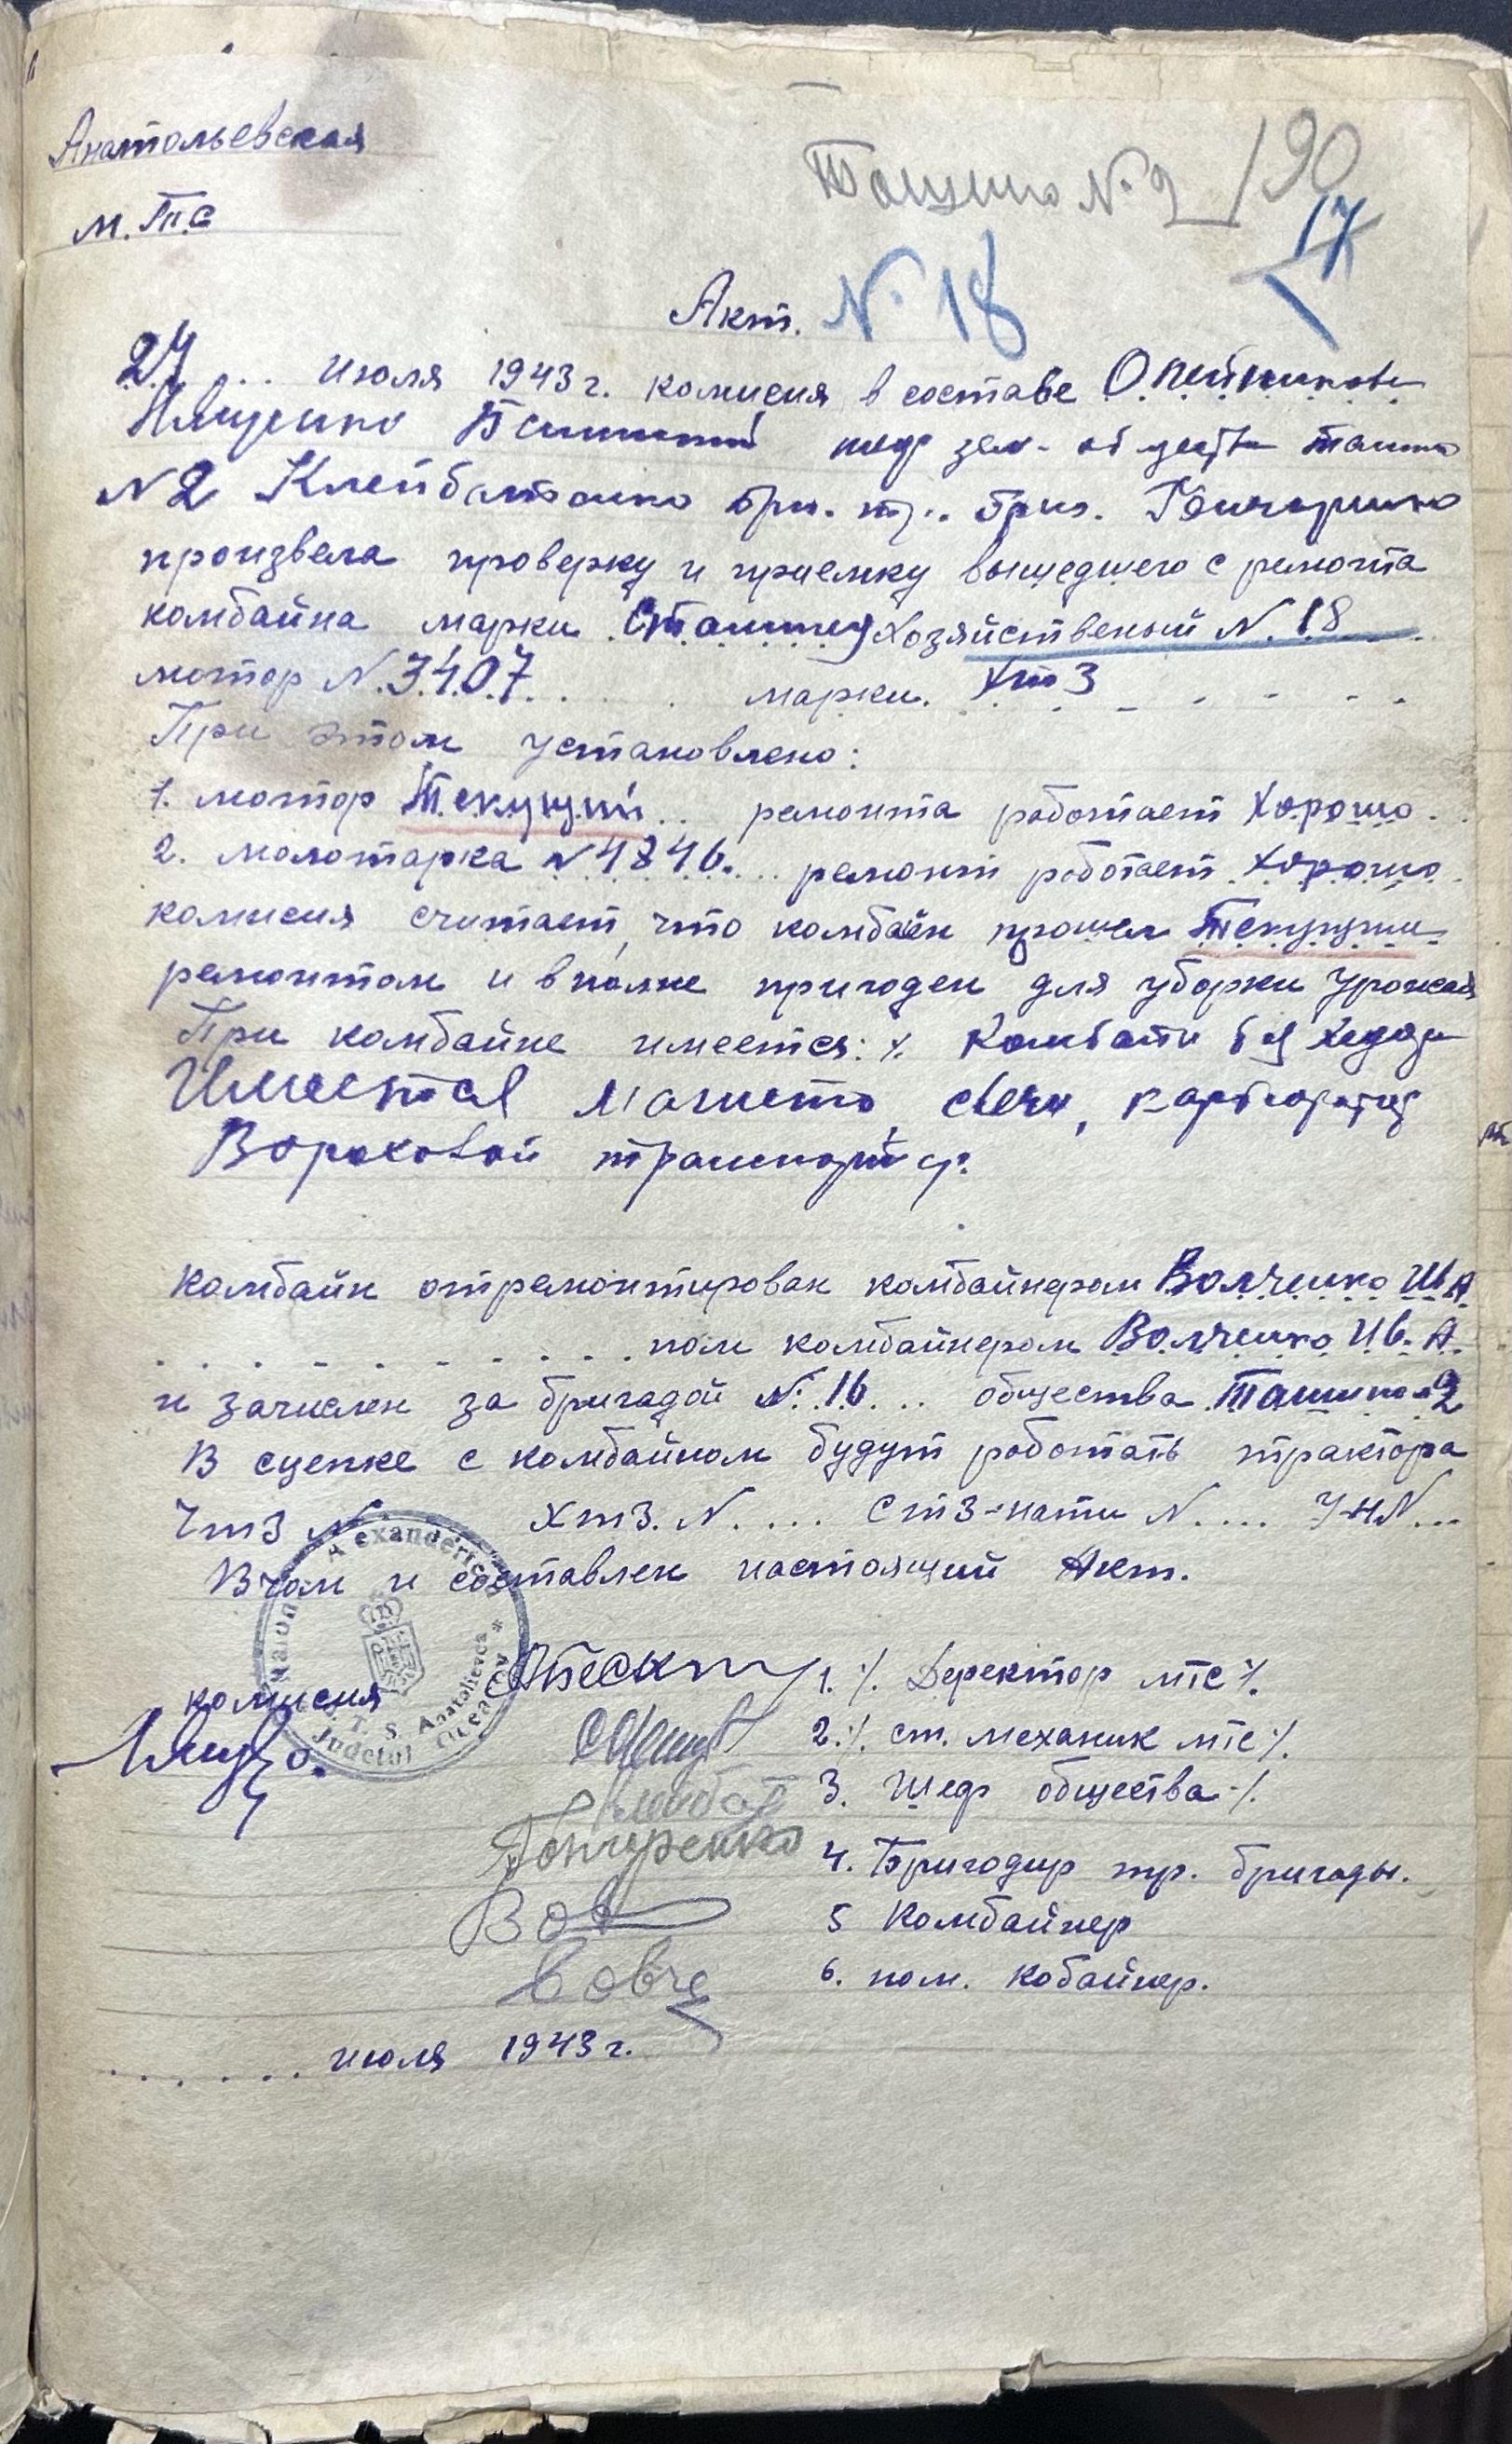 Анатольевская
м.тс
Тошино №2 / 90
17
Акт. № 18
27 . . июля 1943 г. комисия в составе
Ивщенко шеф зем- об
№2 бри. тр.. бриг. Гончаренко
произвела проверку и приемку вышедшего с ремонта
комбайна марки Хозяйственый N. 18
мотор N. 3407. . . . марки. ХтЗ
При этом установлено:
1. мотор Текущий . . ремонта работает Хорошо.
2. молотарка № 4846. . . ремонт работает Хорошо
комисия считает, что комбаен прошел Текущий
ремонтом и вполне пригоден для уборки урожая
При комбайне имеется: ٪ без
Имеется Магнето, свечи, карбюратор
Вороховой транспортер.
Комбайн отремонтирован комбайнером Волченко Ив А
. . . . . . . . . . . пом комбайнером Волченко Ив. А.
и зачислен за бригадой №. 16 . . общества Ташино №2
В сцепке с комбайном будут работать трактора
ЧтЗ N ХтЗ. N. . . . СтЗ-нати N. . . . УНN...
В чом и составлен настоящий Акт.
Alexanderfeld
M.T.S. Anatolievca
Judetul Oceacov
комисия
1. ٪. Деректор мтс ٪.
2. ٪. ст. механик мтс ٪.
3. Шеф общества ٪.
Гончаренко 4. Бригодир тр. бригады.
5 Комбайнер
6. пом. кобайнер.
. . . . . . июля 1943 г.